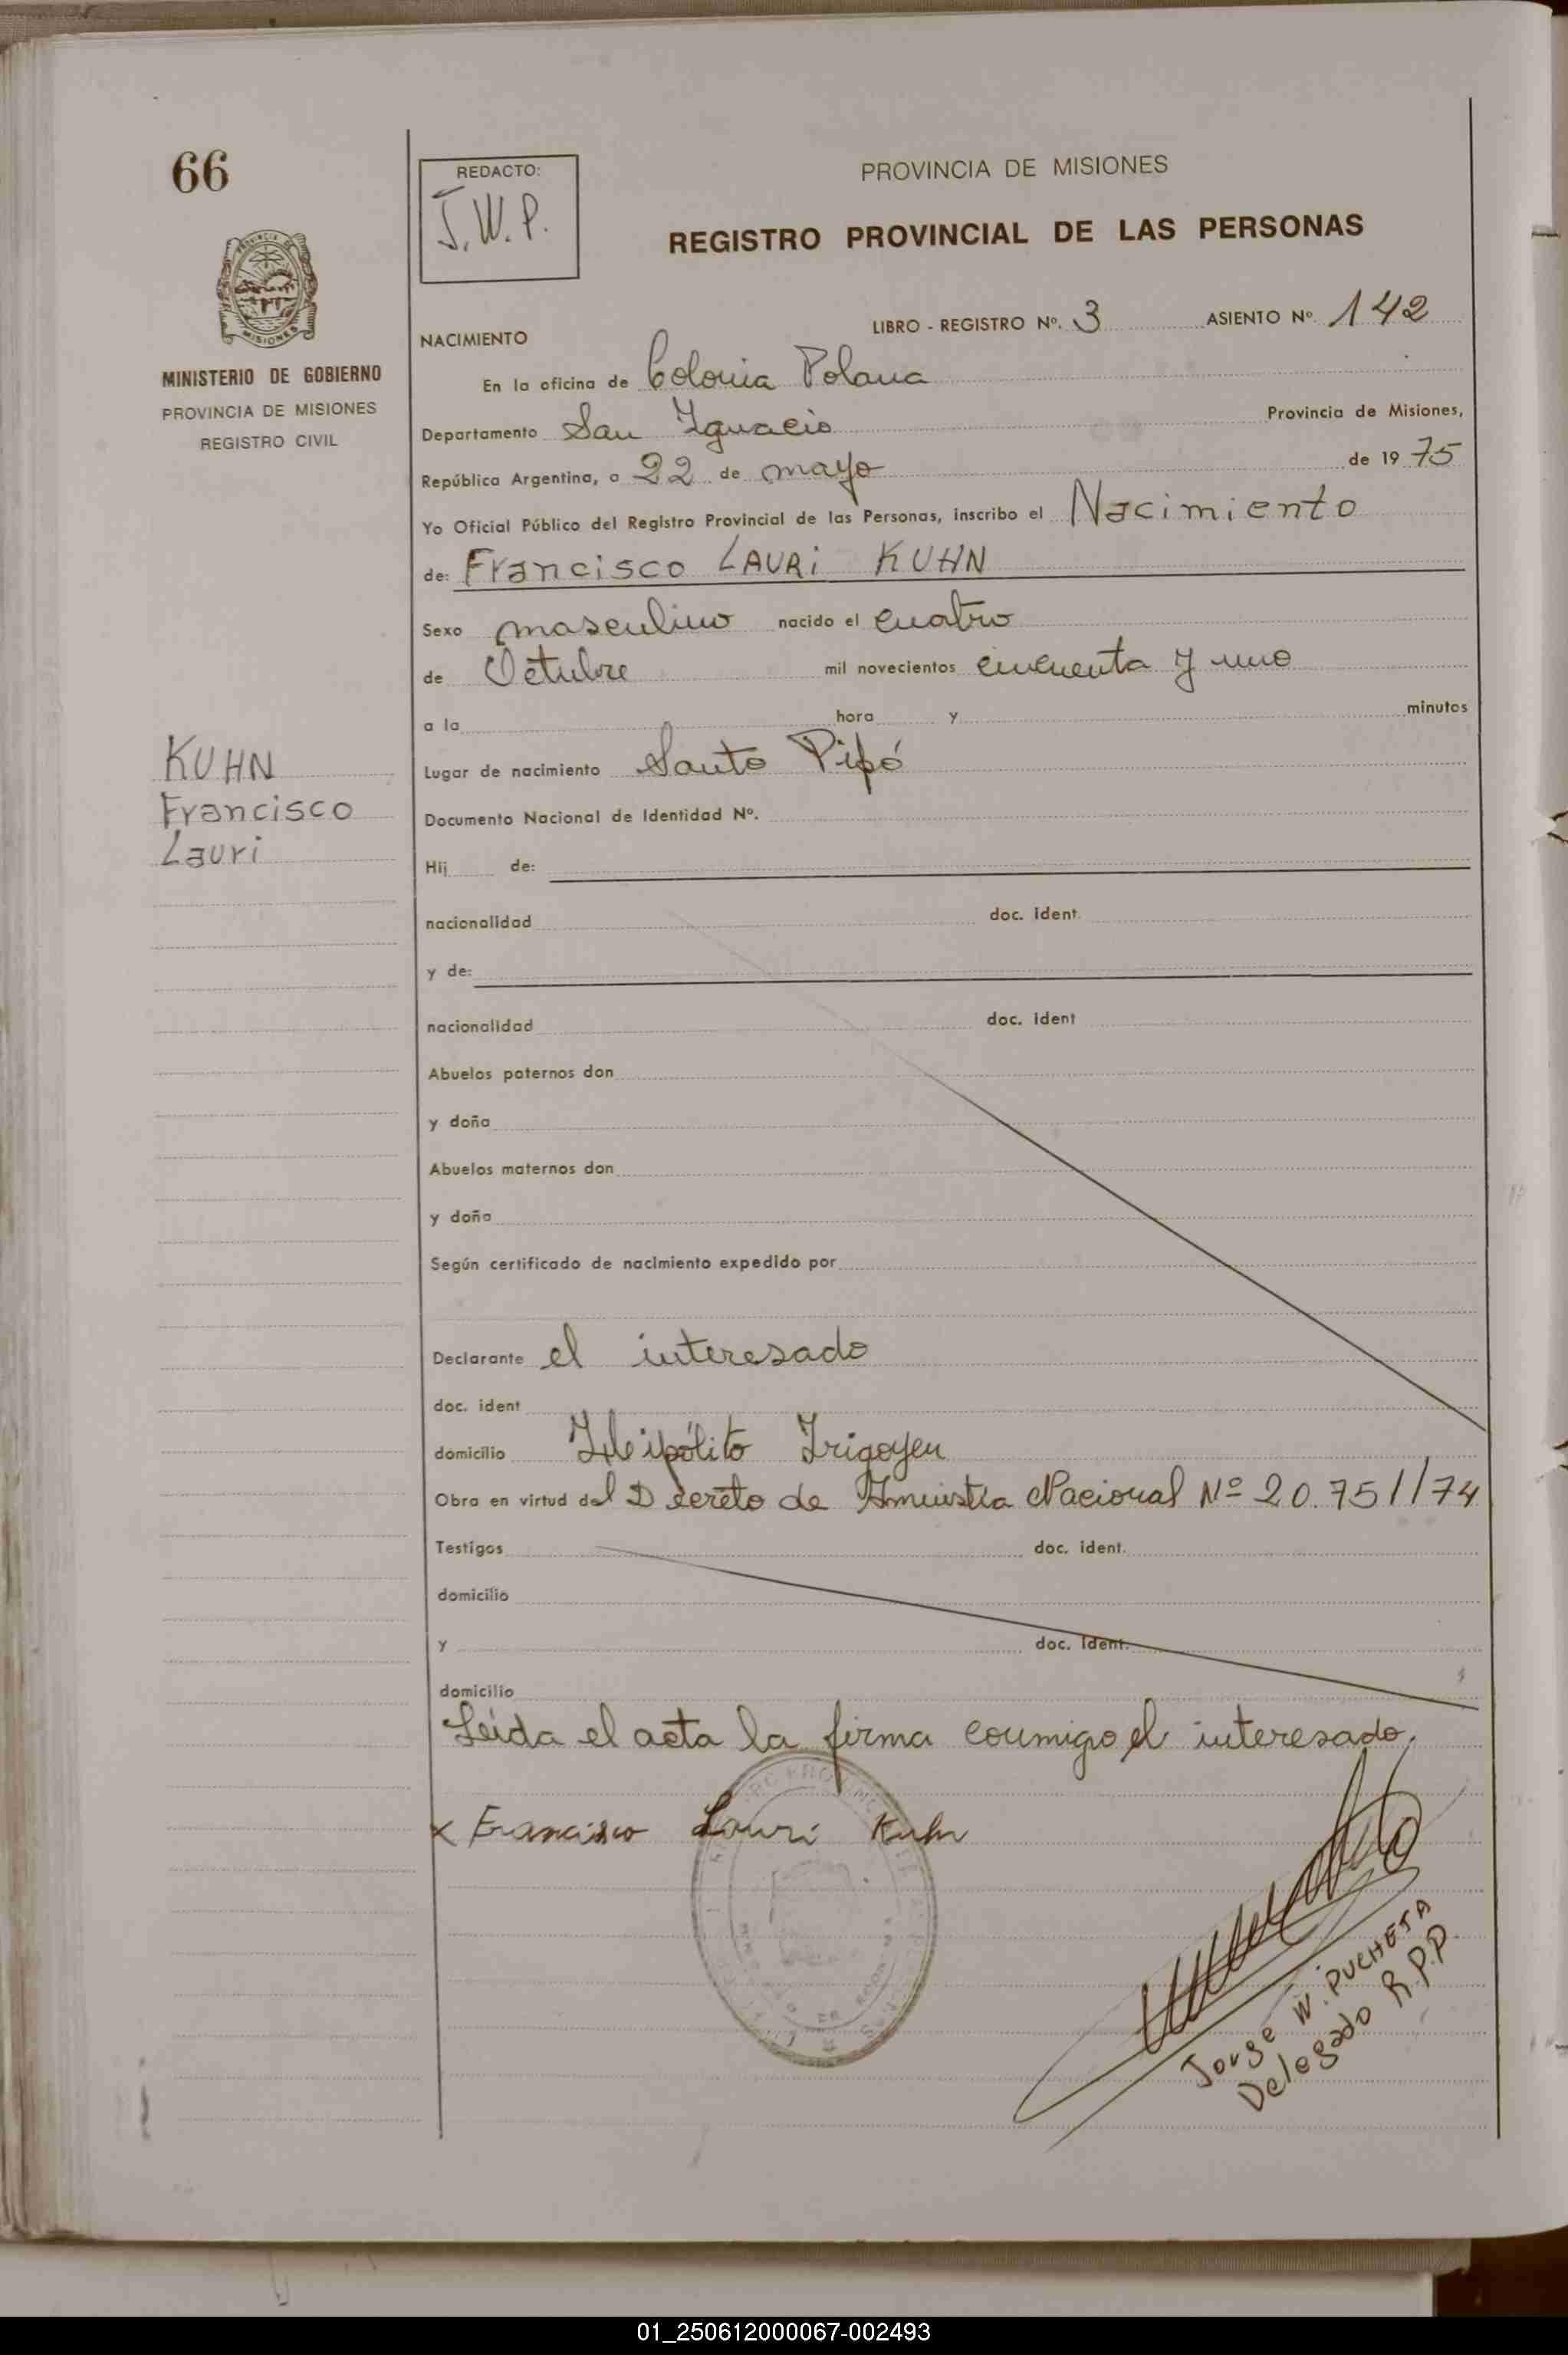 66
REDACTO:
J.W.P.
PROVINCIA DE MISIONES
REGISTRO PROVINCIAL DE LAS PERSONAS
MINISTERIO DE GOBIERNO
PROVINCIA DE MISIONES
REGISTRO CIVIL
LIBRO - REGISTRO Nº. 3 ASIENTO Nº. 142
NACIMIENTO
En la oficina de Colonia Polana
Departamento San Ygnacio Provincia de Misiones,
República Argentina, a 22 de mayo de 1975
Yo Oficial Público del Registro Provincial de las Personas, inscribo el Nacimiento
de: Francisco LAURi KUHN
Sexo masculino nacido el cuatro
de Octubre mil novecientos cincuenta y uno
a la hora y minutos
KUHN
Francisco
Lauri
Lugar de nacimiento Santo Pipó
Documento Nacional de Identidad Nº.
Hij de:
nacionalidad doc. ident.
y de:
nacionalidad doc. ident
Abuelos paternos don
y doña
Abuelos maternos don
y doña
Según certificado de nacimiento expedido por
Declarante el interesado
doc. ident
domicilio Hipólito Irigoyen
Obra en virtud del Decreto de Amnistia Nacional Nº 20.751/74
Testigos doc. ident.
domicilio
y doc. ident.
domicilio
Leida el acta la firma conmigo el interesado.
x Francisco Lauri Kuhn
Jorge W. PUCHETA
Delegado R.P.P.
01_250612000067-002493